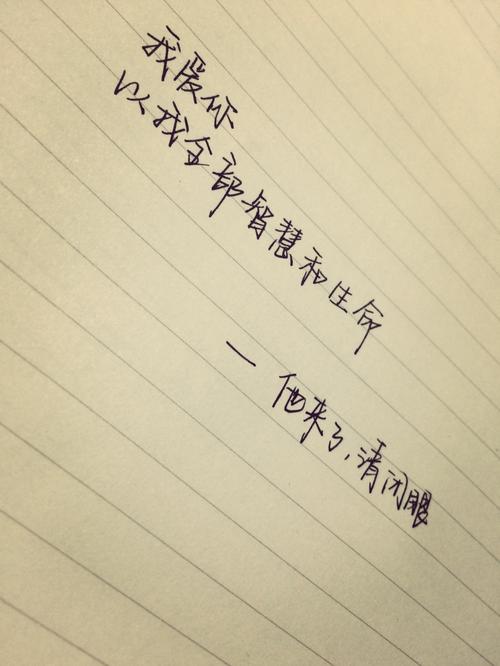 我爱你
以我全部智慧和生命
— 他来了,清闭眼